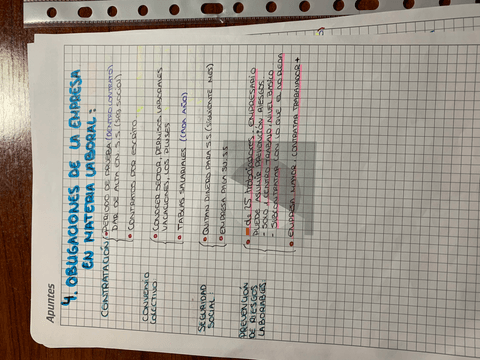 Apuntes
4. OBLIGACIONES DE LA EMPRESA
EN MATERIA LABORAL:
CONTRATACIÓN
• PERIODO DE PRUEBA (DENTRO CONTRATO)
DAR DE ALTA EN S.S.
• CONTRATOS POR ESCRITO
CONVENIO
COLECTIVO
• CONOCER SECTOR, PERMISOS LABORALES
VACACIONES, LOS PLUSES
• TABLAS SALARIALES (CADA AÑO)
SEGURIDAD
SOCIAL
• QUITAN DINERO PARA S.S (SIGUIENTE MES)
• EMPRESA PAGA SU SS
PREVENCIÓN
DE RIESGOS
LABORABLES
• de 25 trabajadores, EMPRESARIO
PUEDE ASUMIR PREVENCIÓN RIESGOS
- SOLO 1 CENTRO TRABAJO, NIVEL BÁSICO
- SUBCONTRATAR CON LO QUE SE DESEA
• EMPRESA MAYOR: CONTRATAR TRABAJADOR +